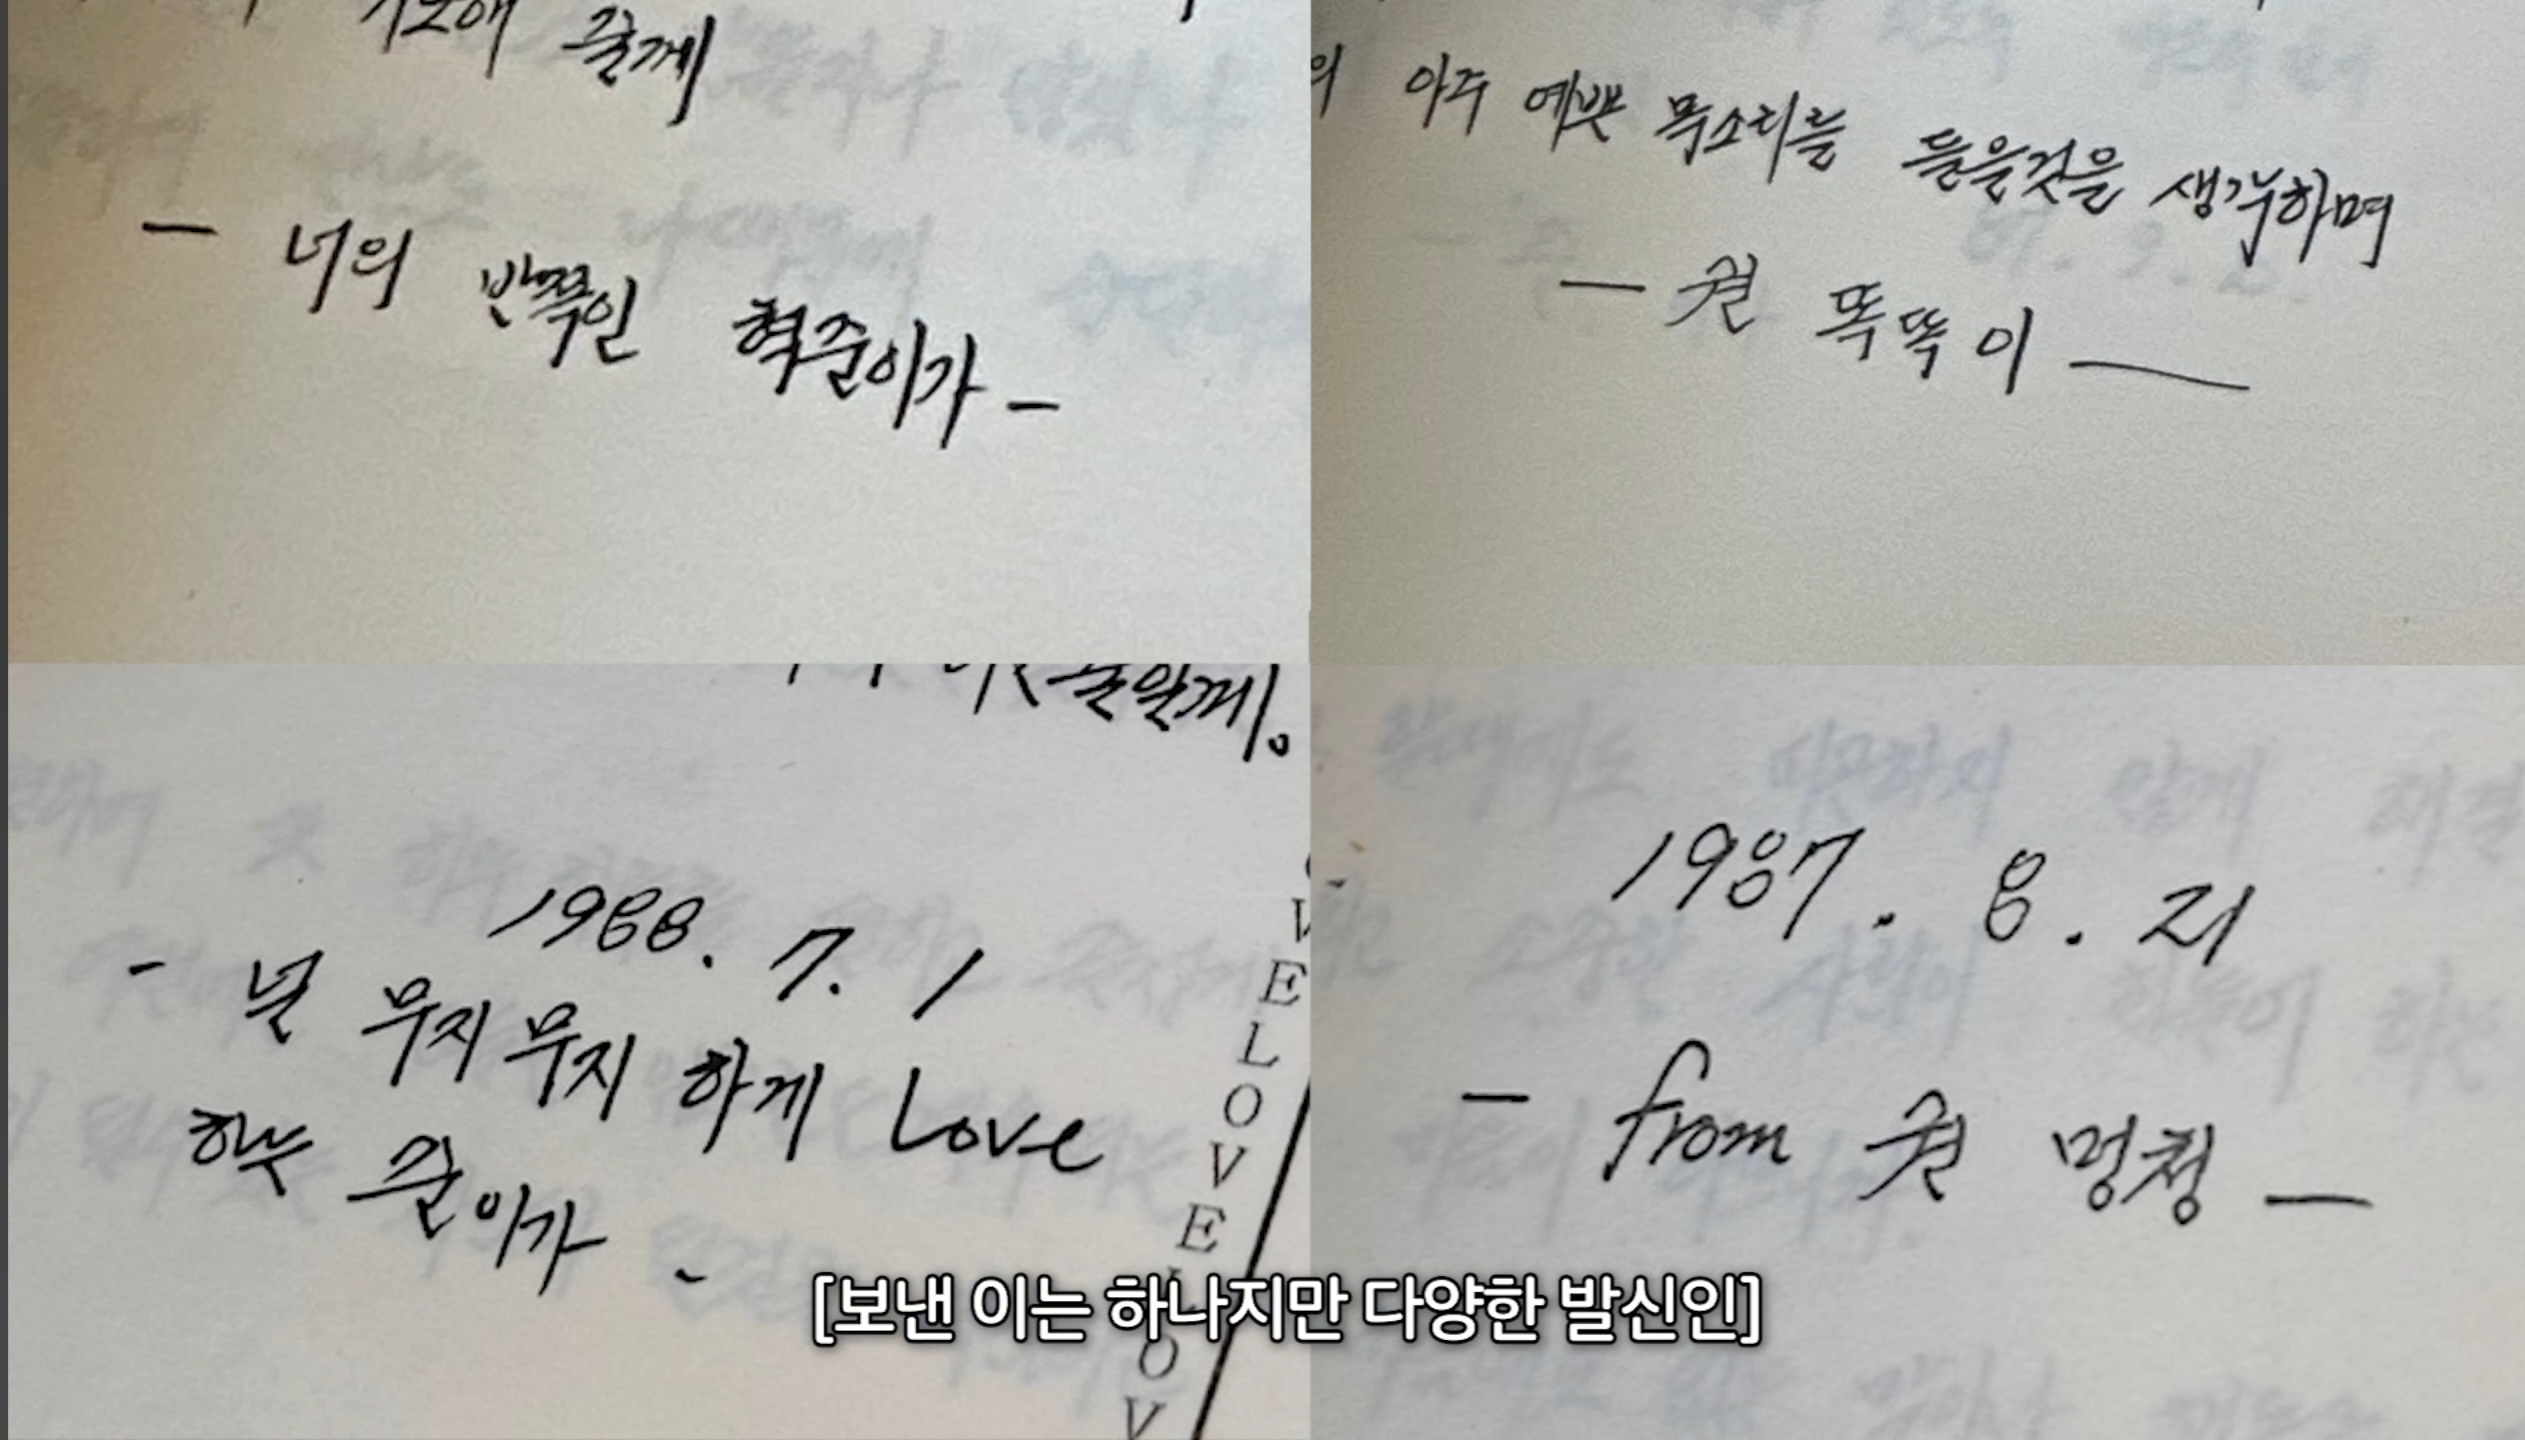 줄께
- 너의 반쪽인 혁준이가 -
아주 예쁜 목소리를 들을것을 생각하며
- 권 똑똑이 -
1988. 7. 1
- 널 무지무지 하게 Love
하는 준이가 -
VELOVE
OV
1987. 8. 21
- from 권 멍청 -
[보낸 이는 하나지만 다양한 발신인]